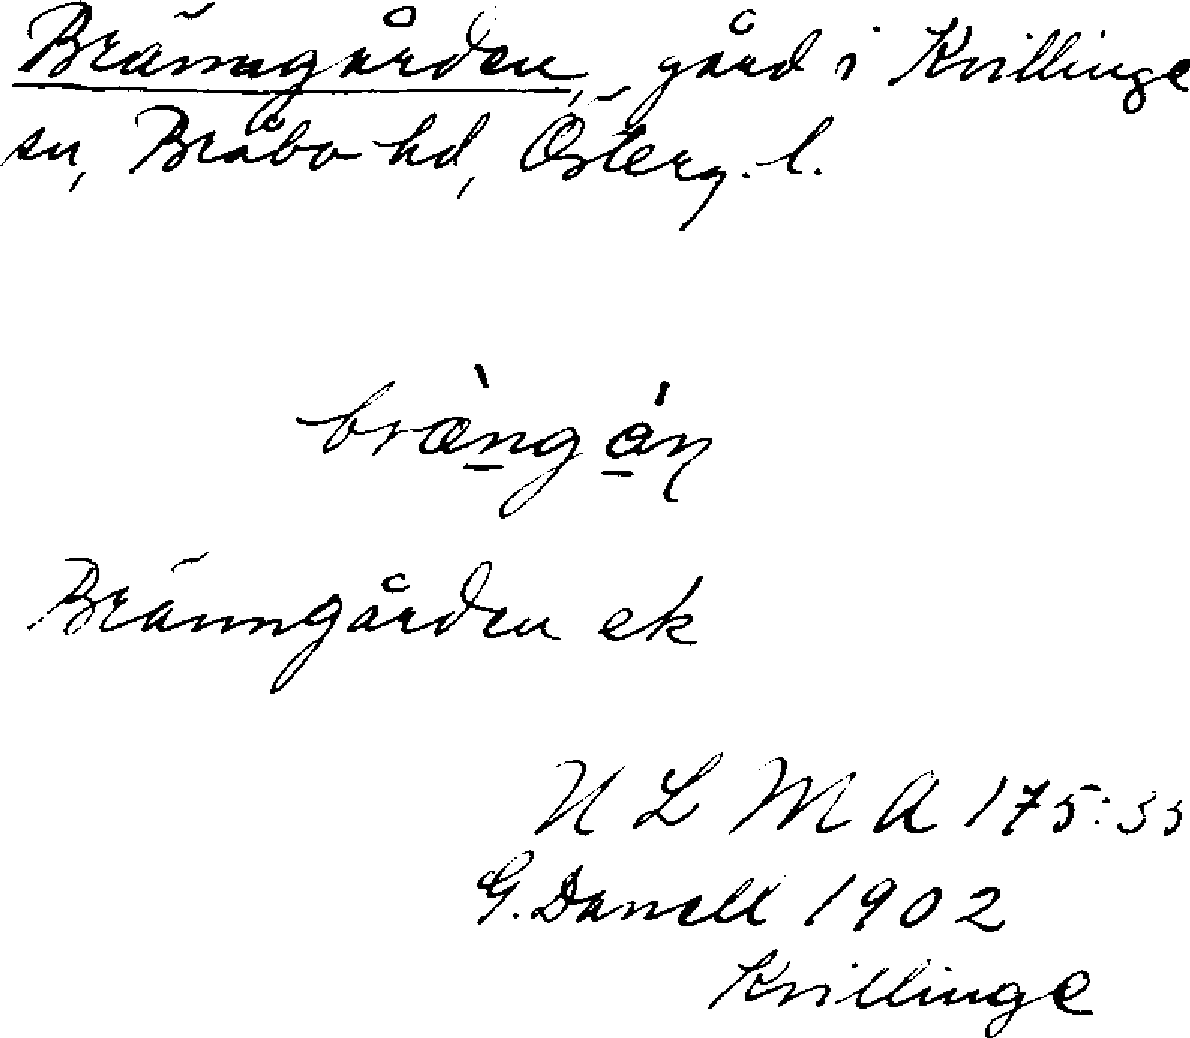 Bränngården, gård i Kvillinge
sn, Bråbo hd, Österg. l.
bræ̀ngán
Bränngården ek
ULMA 175:33
G. Danell 1902
Kvillinge